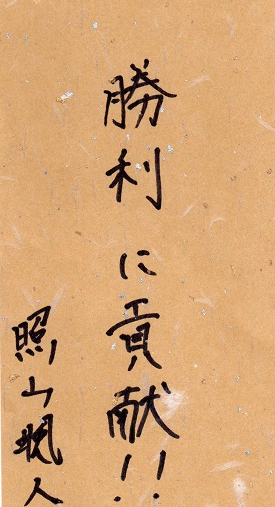 勝利に貢献!!
照山颯人